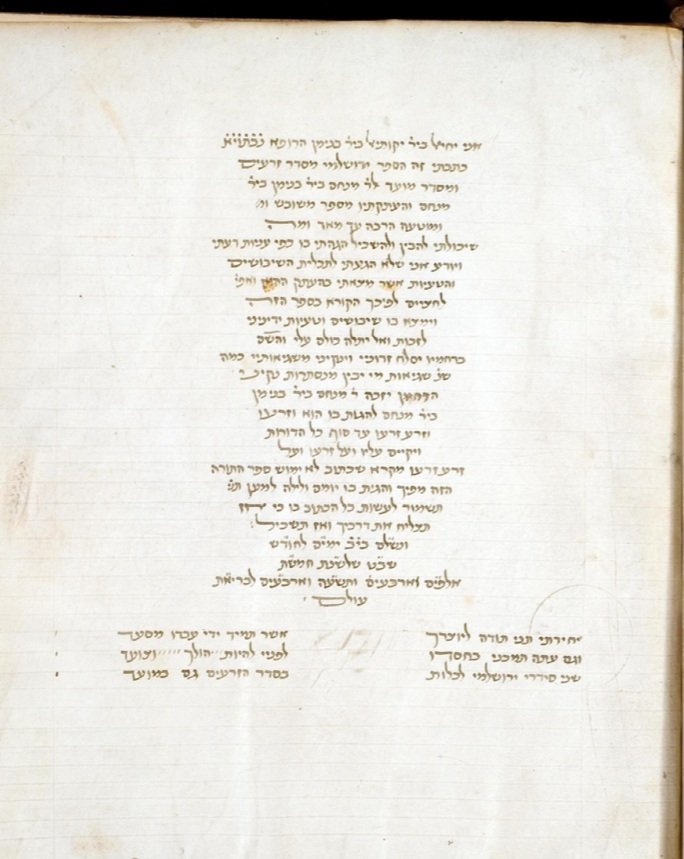 אני יחיאל ביר' יקותיאל ביר' בנימן הרופא נבתויא
כתבתי זה הספר ירושלמי מסדר זרעים
ומסדר מועד לר' מנחם ביר' בנימן ביר'
מנחם והעתקתיו מספר משובש ומ'
ומוטעה הרבה עד מאד ומה
שיכולתי להבין ולהשכיל הגהתי בו כפי עניות דעתי
ויודע אני שלא הגעתי לתכלית השיבושים
והטעיות אשר מצאתי בהעתק ההוא ואפי'
לחציים לפיכך הקורא בספר הזה
וימצא בו שיבושים וטעיות ידינני
לזכות ואל יתלה כולם עלי והשם
ברחמיו יסלח זדוניי וינקיני משגיאותיי כמה
שנ' שגיאות מי יבין מנסתרות נקיני
הרחמן יזכה ר' מנחם ביר' בנימן
ביר' מנחם להגות בו הוא וזרעו
וזרע זרעו עד סוף כל הדורות
ויקיים עליו ועל זרעו ועל
זרע זרעו מקרא שכתוב לא ימוש ספר התורה
הזה מפיך והגית בו יומם ולילה למען ת'
תשמור לעשות ככל הכתוב בו כי אז
תצליח את דרכיך ואז תשכיל:
ונשלם בי"ב ימים לחודש
שבט שלשנת חמשת
אלפים וארבעים ותשעה וארבעים לבריאת
עולם
יחידתי תני תודה ליוצרך אשר תמיד ידי עבדו מסעד
וגם עתה תמכני בחסדו לפניי להיות הולך וצועד
שני סידרי ירושלמי לכלות בסדר הזרעים גם במועד